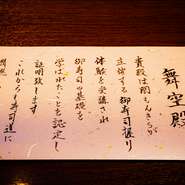 舞空殿
貴殿は関もんきちが
主催する御寿司握り
体験を受講され
御寿司の基礎を
学ばれたことを認定し
証明致します
これから寿司道に